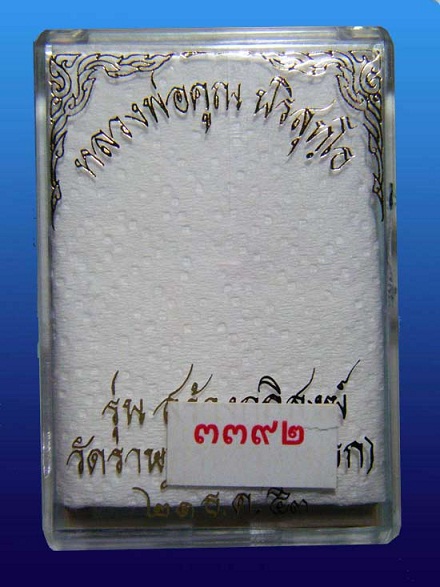 หลวงพ่อคูณ ปริสุทฺโธ
รุ่น สร้างกุฏิสงฆ์
๓๓๙๒
๒๑ ธ.ค. ๕๓